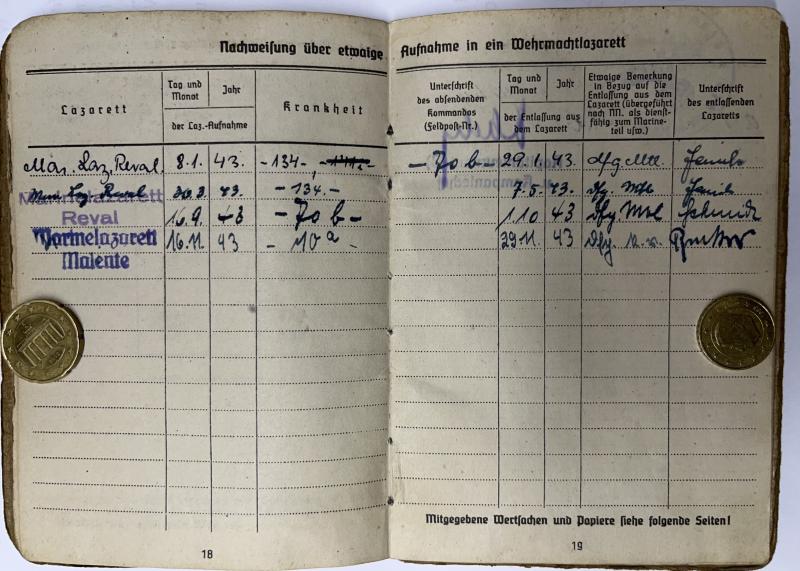 Nachweisung über etwaige Aufnahme in ein Wehrmachtlazarett
Lazarett
Tag und Monat
Jahr
der Laz.-Aufnahme
Krankheit
Unterschrift des absendenden Kommandos (Feldpost-Nr.)
Tag und Monat
Jahr
der Entlassung aus dem Lazarett
Etwaige Bemerkung in Bezug auf die Entlassung aus dem Lazarett (übergeführt nach NN. als dienstfähig zum Marineteil usw.)
Unterschrift des entlassenden Lazaretts
Mar. Laz. Reval. 8.1. 43. -134-, - 70 b - 29.1. 43. dfg. Mtl.
Laz. Reval 43. -134.- 7.5. 43.
Marinelazarett
Reval 16.9. 43 - 70 b - 1.10 43
Marinelazarett 16.11. 43 - 10a - 29.11. 43
Malente
Mitgegebene Wertsachen und Papiere siehe folgende Seiten!
18
19